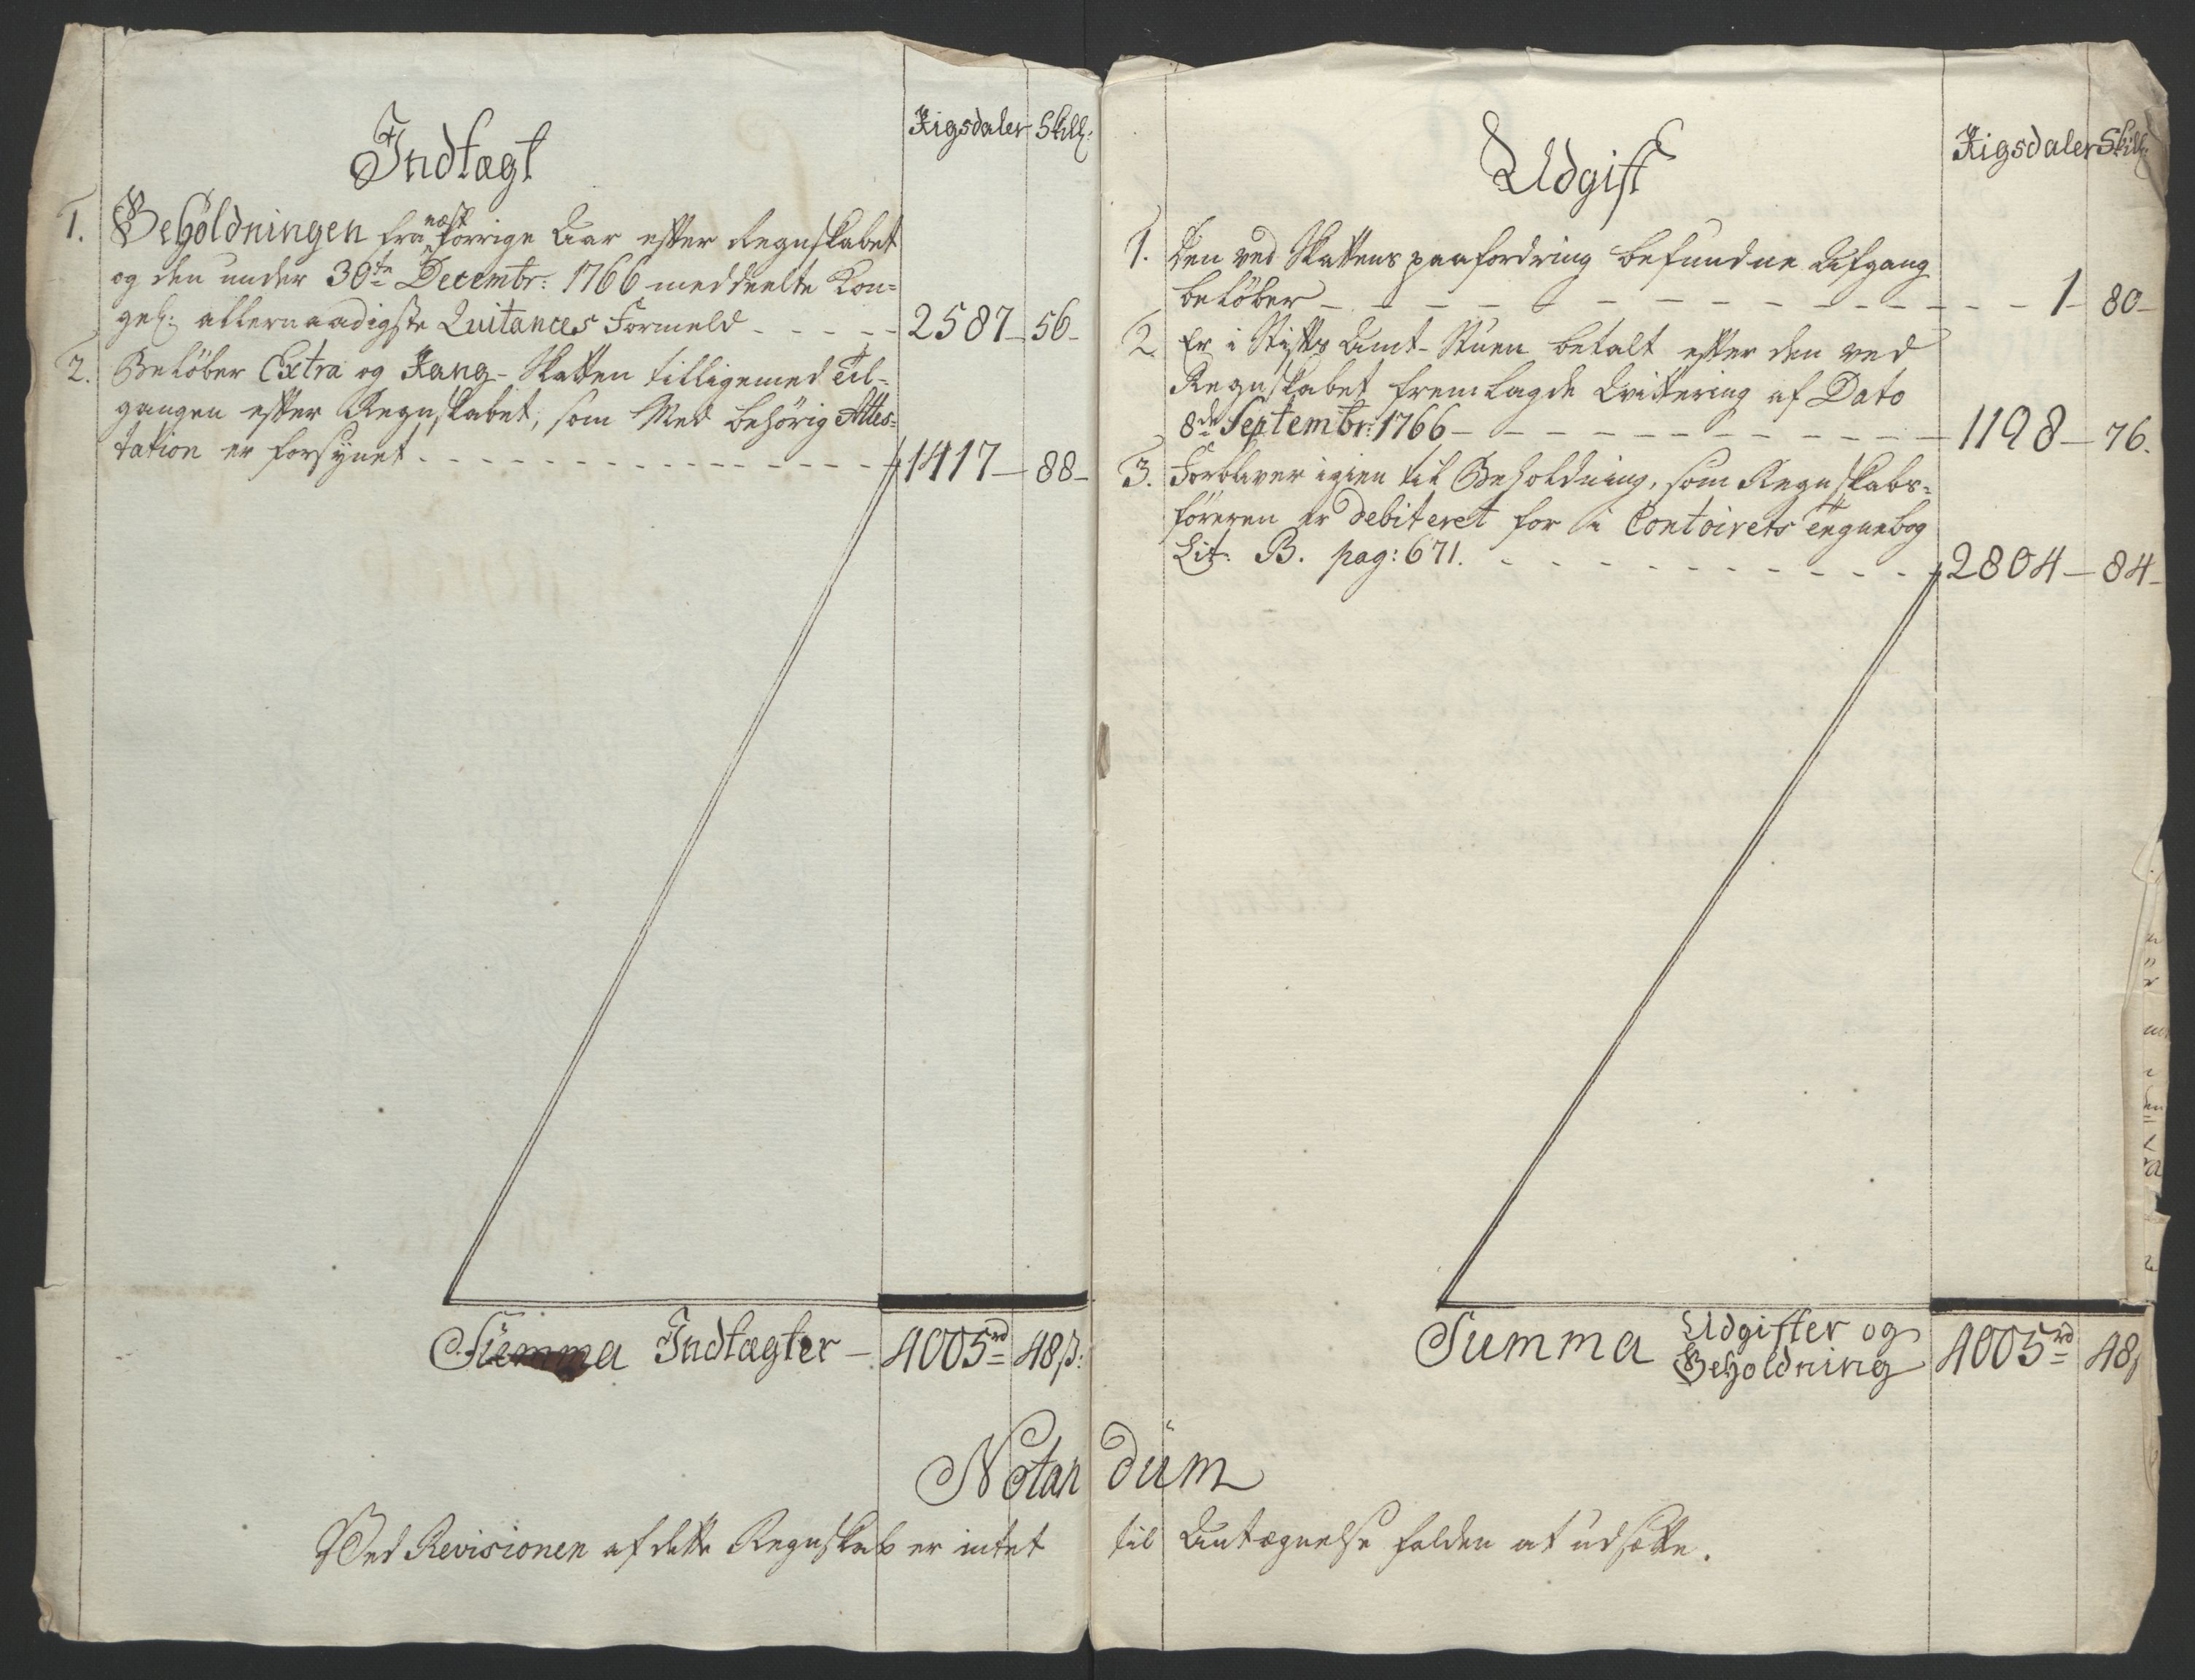 Indtægt
Rigsdaler Skill:
1. Beholdningen fra næst forrige Aar efter Regnskabet
og den under 30te Decembr: 1766 meddeelte Kon=
gel: allernaadigste Quitances Formeld - - - - - 2587 - 56 -
2. Beløber Extra og Rang-Skatten tilligemed Til=
gangen efter Regnskabet, som Med behörig Attes=
tation er forsynet - - - - - - - - 1417 - 88 -
Summa Indtægter - 4005rd 48ß:
Udgift
Rigsdaler Skill:
1. Den ved Skattens paafordring befundne Afgang
beløber - - - - - - - - - - 1 - 80 -
2. Er i Stifts Amt-Stuen betalt efter den ved
Regnskabet fremlagde Qvittering af Dato
8de Septembr: 1766 - - - - - - - - - 1198 - 76.
3. Forbliver igien til Beholdning, som Regnskabs=
föreren er debiteret for i Contoirets Tegnebog
Lit: B. pag: 671. - - - - - - - - 2804 - 84 -
Summa Udgifter og
Beholdning 4005rd 48ß
Notandum
Ved Revisionen af dette Regnskab er intet til Antegnelse falden at udsætte.